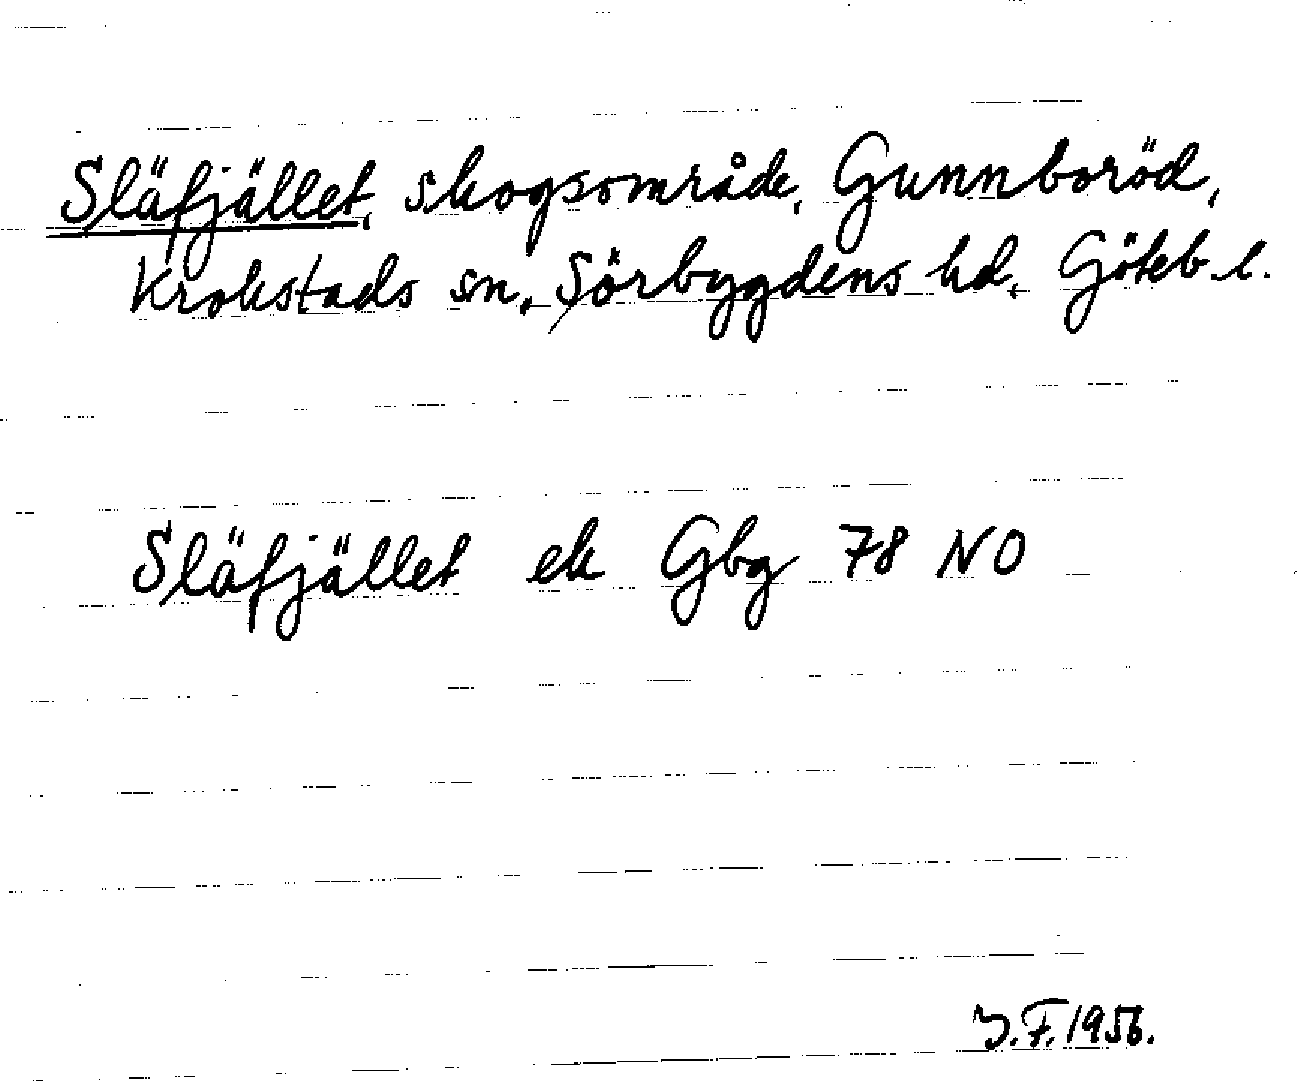 Släfjället, skogsområde, Gunnboröd,
Krokstads sn, Sörbygdens hd, Göteb. l.
Släfjället ek Gbg 78 NO
J.F. 1956.